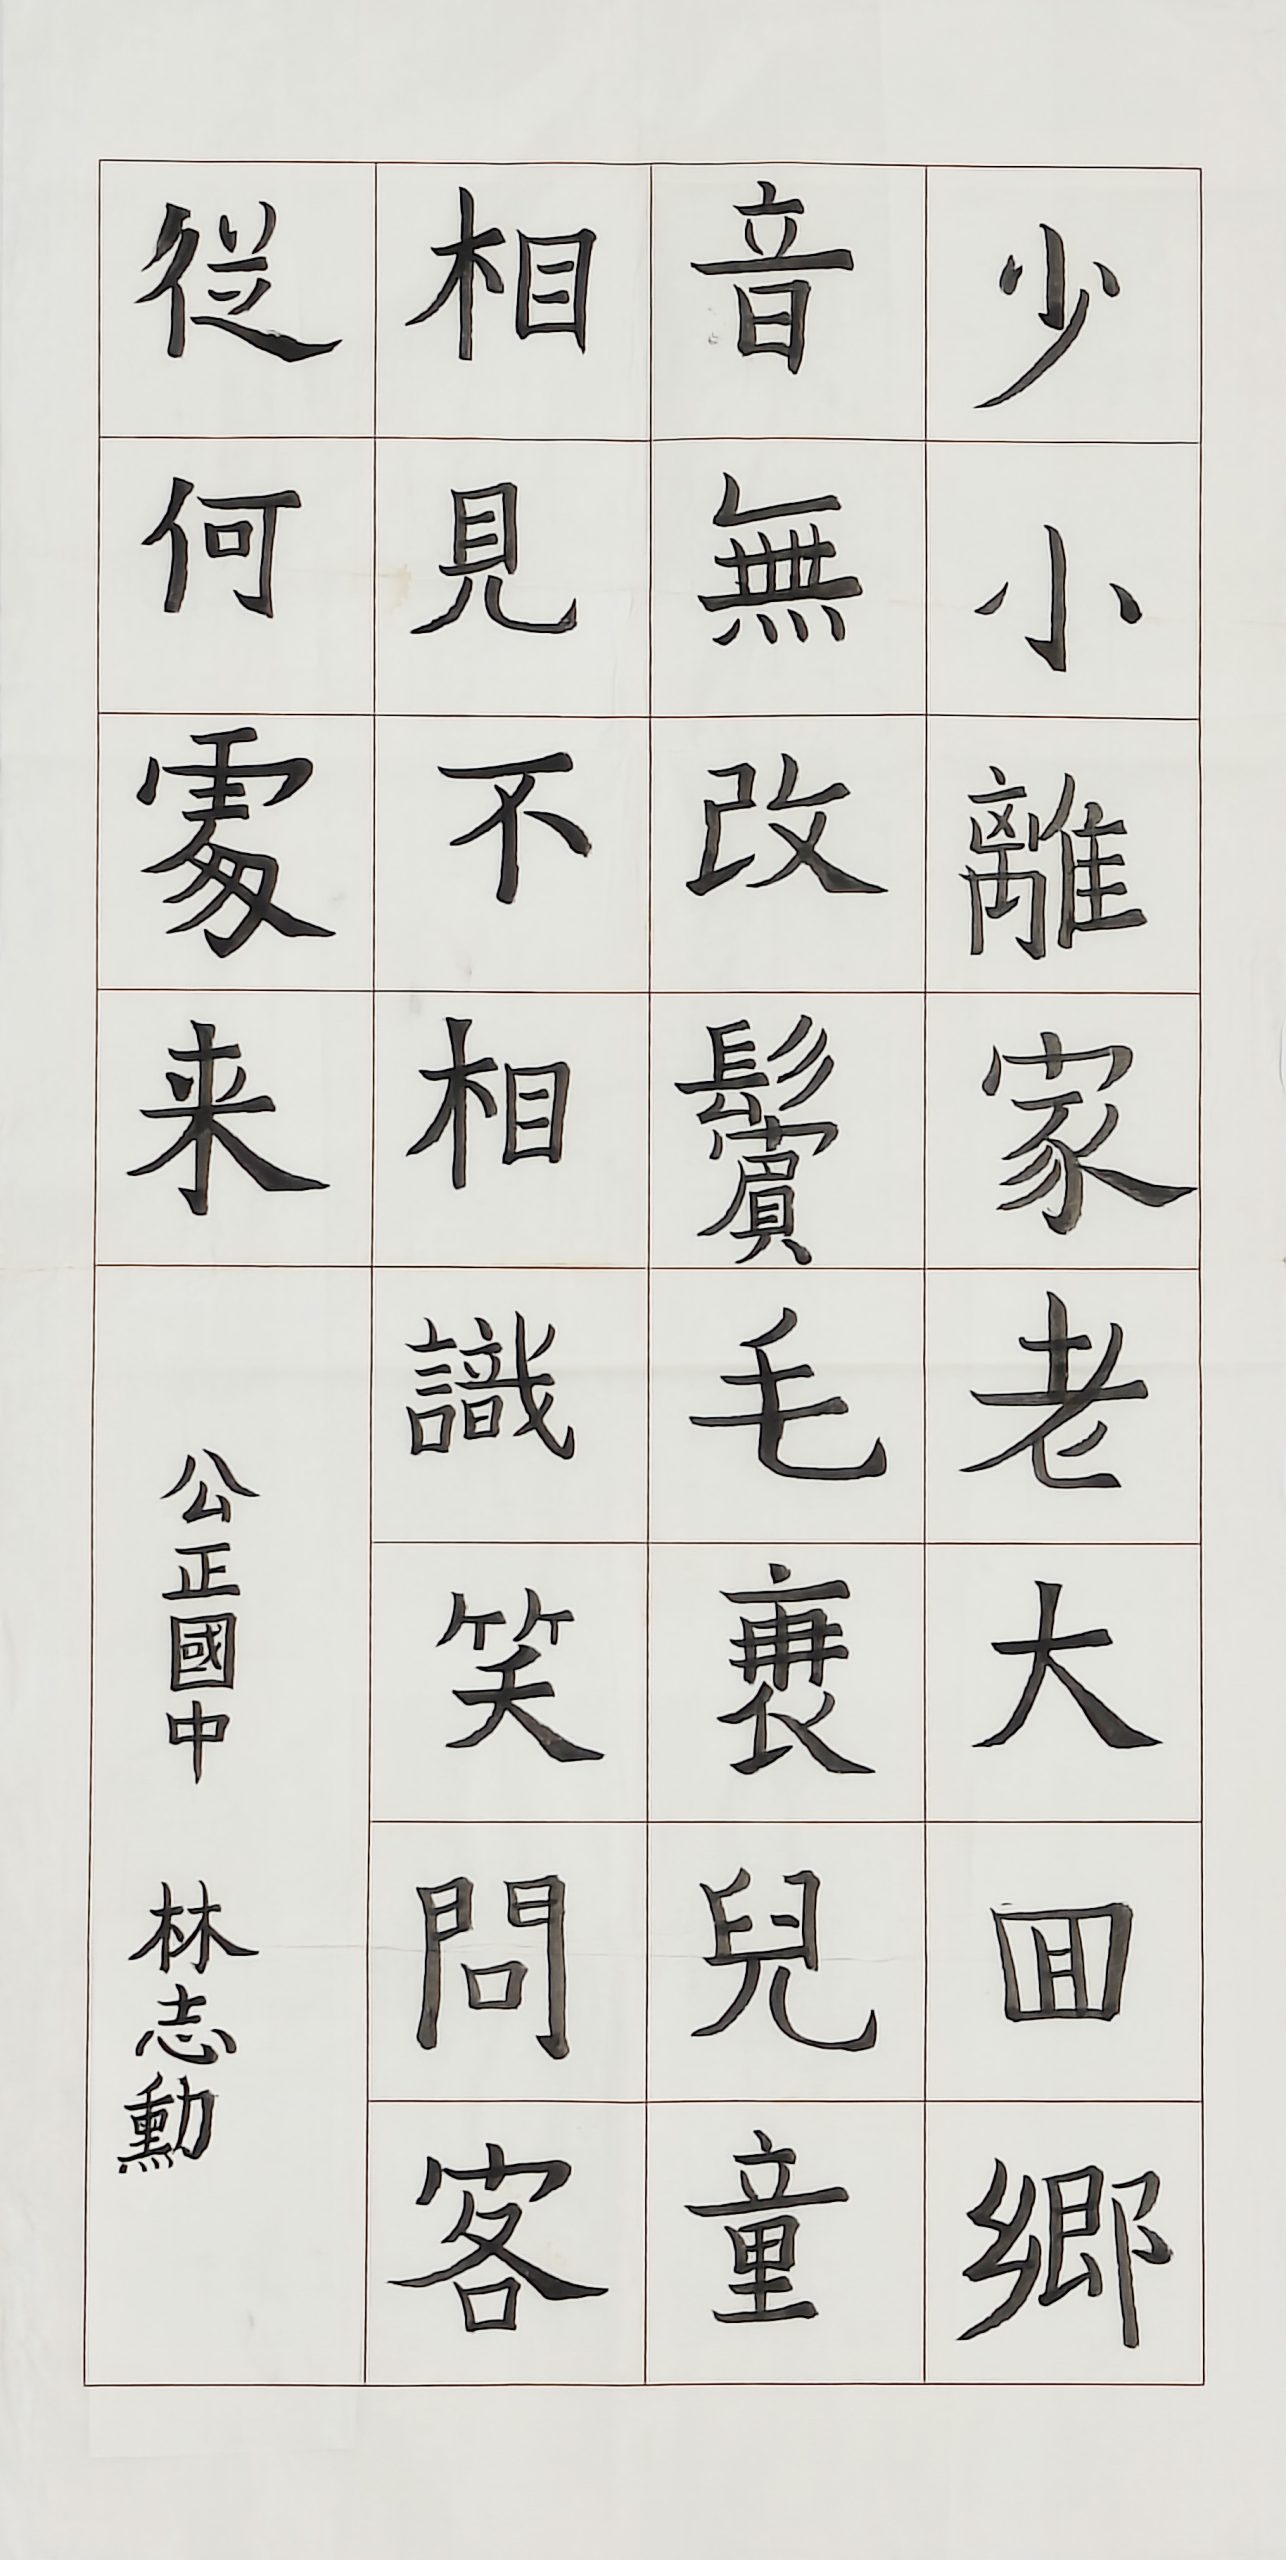 少小離家老大回鄉
音無改鬢毛衰兒童
相見不相識笑問客
從何處来
公正國中 林志勳